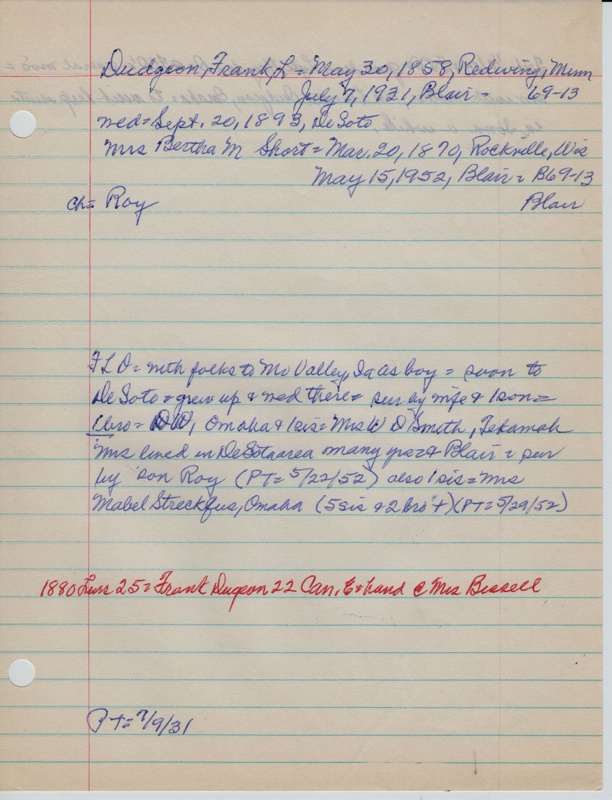 Dudgeon, Frank L = May 30, 1858, Redwing, Minn
July 7, 1931, Blair - 69-13
med = Sept. 20, 1893, De Soto
Mrs Bertha M Short = Mar. 20, 1870, Rockville, Wis
May 15, 1952, Blair = B69-13
Blair
ch = Roy
F L D = with folks to Mo Valley, Ia as boy = soon to
De Soto = grew up & med there = sur by wife & 1 son =
1 bro = D W, Omaha & 1 sis = Mrs W D Smith, Tekamah
Mrs lived in DeSoto area many yrs = & Blair = sur
by son Roy (PT = 5/22/52) also 1 sis = Mrs
Mabel Streckfus, Omaha (5 sis & 2 bro's +) (PT = 5/29/52)
1880 25 = Frank Dugeon 22 Can, E = hand @ Mrs Bissell
PT = 7/9/31